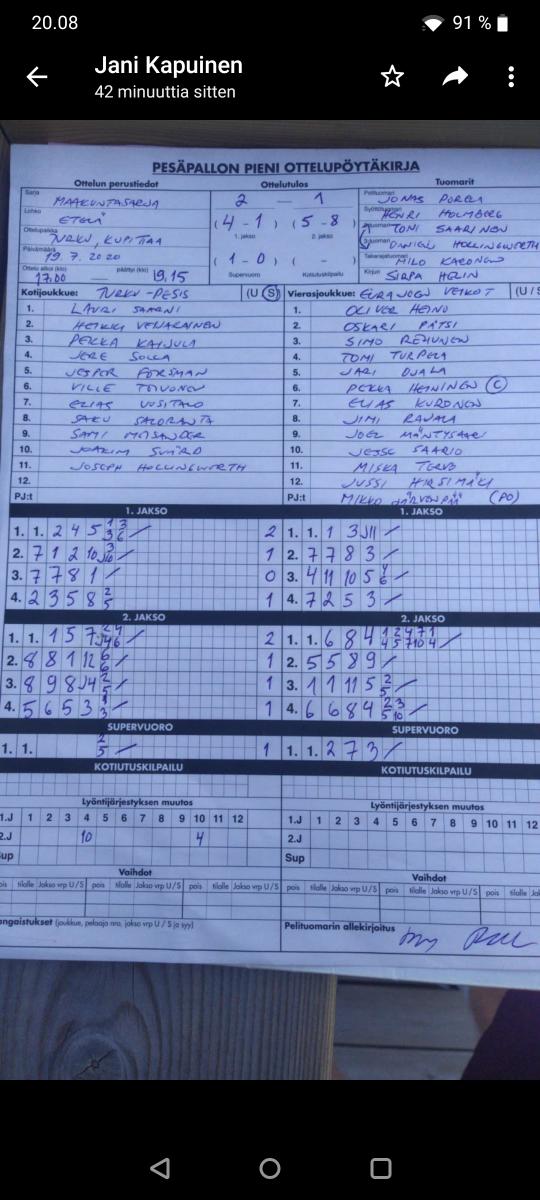 20.08
91 %
Jani Kapuinen
42 minuuttia sitten
PESÄPALLON PIENI OTTELUPÖYTÄKIRJA
Ottelun perustiedot Ottelutulos Tuomarit
Sarja MAAKUNTASARJA 2 — 1 Pelituomari JONAS
Lohko ETELÄ (4-1) (5-8) Syöttötuomari HENRI HOLMBERG
Ottelupaikka TURKU, KUPITTAA 1. jakso 2. jakso TONI SAARINEN
Päivämäärä 19.7.2020 HOLLINGWORTH
Ottelu alkoi (klo) 17.00 päättyi (klo) 19,15 (1-0) ( - ) Takarajatuomari MILO KARONEN
Supervuoro Kotiutuskilpailu Kirjuri SIRPA HELIN
Kotijoukkue: TURKU-PESIS (U S) Vierasjoukkue: EURAJOEN VEIKOT (U / S
1. LAURI SAARNI 1. OLIVER HEINO
2. HEIKKI 2. OSKARI PÄTSI
3. PEKKA KAIJULA 3. SIMO REHUNEN
4. JERE SOLLA 4. TOMI TURPELA
5. JESPER FORSMAN 5. JARI OJALA
6. VILLE TOIVONEN 6. PEKKA HEININEN (C)
7. ELIAS UUSITALO 7. ELIAS KURONEN
8. SAKU SALORANTA 8. JIMI RAVALA
9. SAMI MEISANDER 9. JOEL MÄNTYSAARI
10. JOAKIM SVÄRD 10. JESSE SAARIO
11. JOSEPH HOLLINGWORTH 11. MISKA TERVO
12. 12. JUSSI HIRSIMÄKI
PJ:t PJ:t MIKKO JÄRVENPÄÄ (PO)
1. JAKSO 1. JAKSO
1. 1. 2 4 5 2 1. 1. 1 3
2. 7 1 2 10 1 2. 7 7 8 3
3. 7 7 8 1 0 3. 4 11 10 5
4. 2 3 5 8 1 4. 7 2 5 3
2. JAKSO 2. JAKSO
1. 1. 1 5 7 2 1. 1. 6 8 4
2. 8 8 1 1 2. 5 5 8 9
3. 8 9 8 1 3. 1 1 11 5
4. 5 6 5 3 1 4. 6 6 8 4
SUPERVUORO SUPERVUORO
1. 1. 2 5 1 1. 1. 2 7 3
KOTIUTUSKILPAILU KOTIUTUSKILPAILU
Lyöntijärjestyksen muutos Lyöntijärjestyksen muutos
1.J 1 2 3 4 5 6 7 8 9 10 11 12 1.J 1 2 3 4 5 6 7 8 9 10 11 12
2.J 10 4 2.J
Sup Sup
Vaihdot Vaihdot
pois tilalle Jakso vrp U / S pois tilalle Jakso vrp U / S pois tilalle Jakso vrp U / S pois tilalle Jakso vrp U / S pois tilalle Jakso vrp U / S pois tilalle
Rangaistukset (joukkue, pelaaja nro, jakso vrp U / S ja syy) Pelituomarin allekirjoitus